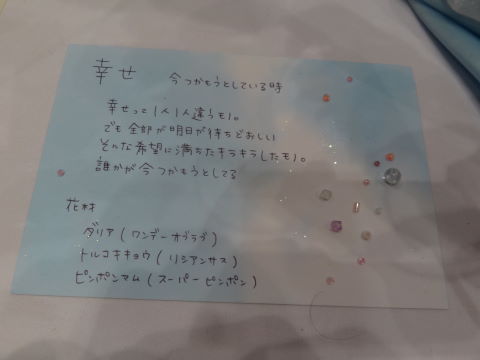 幸せ 今つかもうとしている時
幸せって1人1人違うもの。
でも全部が明日が待ちどおしい
そんな希望に満ちたキラキラしたモノ。
誰かが今つかもうとしてる
花材
ダリア(ワンデーオブラブ)
トルコキキョウ(リシアンサス)
ピンポンマム(スーパーピンポン)